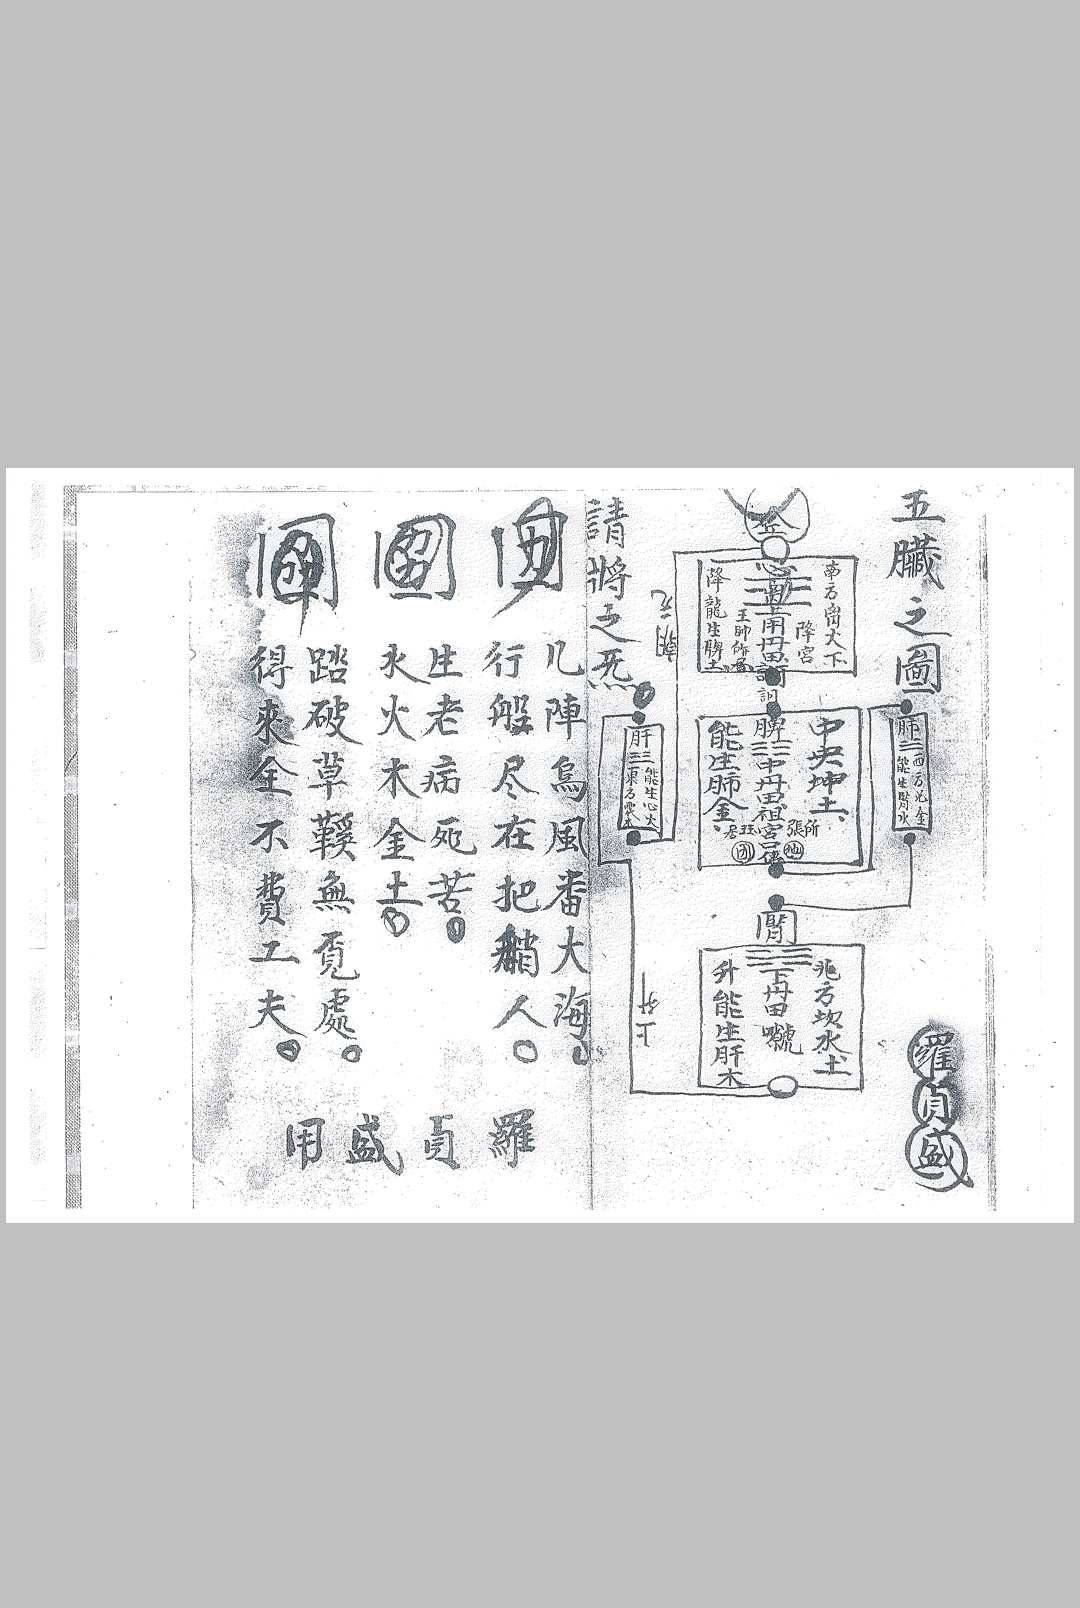 五臟之圖
羅貞盛
南方
火下
降宮
上丹田
王帥所居
降龍生脾土
肺
西方兌金
能生腎水
中央坤土
脾
中丹田祖宮
所
張
居
能生肺金
肝
能生心火
東方震木
腎
坎水
下丹田
升能生肝木
上升
請將之炁
几陣烏風番大海
行般尽在把艄人
生老病死苦
水火木金土
踏破草鞋無覓處
得來全不費工夫
羅貞盛用